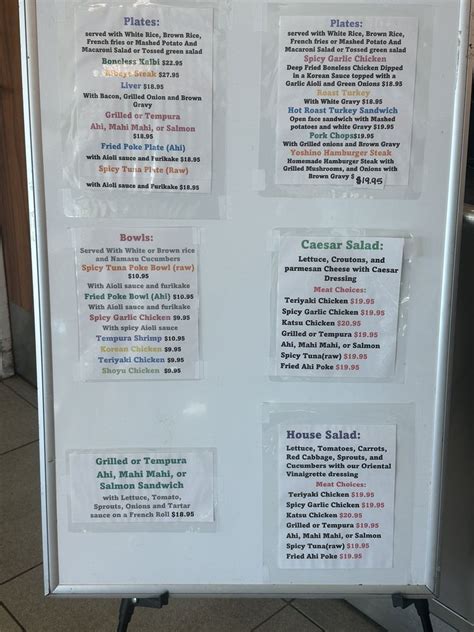 Plates:
served with White Rice, Brown Rice,
French fries or Mashed Potato And
Macaroni Salad or Tossed green
salad
Boneless Kalbi $22.95
Ribeye Steak $27.95
Liver $18.95
With Bacon, Grilled Onion and Brown
Gravy
Grilled or Tempura
Ahi, Mahi Mahi, or Salmon
$18.95
Fried Poke Plate (Ahi)
with Aioli sauce and Furikake $18.95
Spicy Tuna Plate (Raw)
with Aioli sauce and Furikake $18.95
Plates:
served with White Rice, Brown Rice,
French fries or Mashed Potato And
Macaroni Salad or Tossed green salad
Spicy Garlic Chicken
Deep Fried Boneless Chicken Dipped
in a Korean Sauce topped with a
Garlic Aioli and Green Onions $18.95
Roast Turkey
With White Gravy $18.95
Hot Roast Turkey Sandwich
Open face sandwich with Mashed
potatoes and white Gravy $19.95
Pork Chops $19.95
With Grilled onions and Brown Gravy
Yoshino Hamburger Steak
Homemade Hamburger Steak with
Grilled Mushrooms, and Onions with
Brown Gravy $ $19.95
Bowls:
Served With White or Brown rice
and Namasu Cucumbers
Spicy Tuna Poke Bowl (raw)
$10.95
With Aioli sauce and furikake
Fried Poke Bowl (Ahi) $10.95
With Aioli sauce and furikake
Spicy Garlic Chicken $9.95
With spicy Aioli sauce
Tempura Shrimp $10.95
Korean Chicken $9.95
Teriyaki Chicken $9.95
Shoyu Chicken $9.95
Caesar Salad:
Lettuce, Croutons, and
parmesan Cheese with Caesar
Dressing
Meat Choices:
Teriyaki Chicken $19.95
Spicy Garlic Chicken $19.95
Katsu Chicken $20.95
Grilled or Tempura $19.95
Ahi, Mahi Mahi, or Salmon
Spicy Tuna(raw) $19.95
Fried Ahi Poke $19.95
Grilled or Tempura
Ahi, Mahi Mahi, or
Salmon Sandwich
with Lettuce, Tomato,
Sprouts, Onions and Tartar
sauce on a French Roll $18.95
House Salad:
Lettuce, Tomatoes, Carrots,
Red Cabbage, Sprouts, and
Cucumbers with our Oriental
Vinaigrette dressing
Meat Choices:
Teriyaki Chicken $19.95
Spicy Garlic Chicken $19.95
Katsu Chicken $20.95
Grilled or Tempura $19.95
Ahi, Mahi Mahi, or Salmon
Spicy Tuna(raw) $19.95
Fried Ahi Poke $19.95